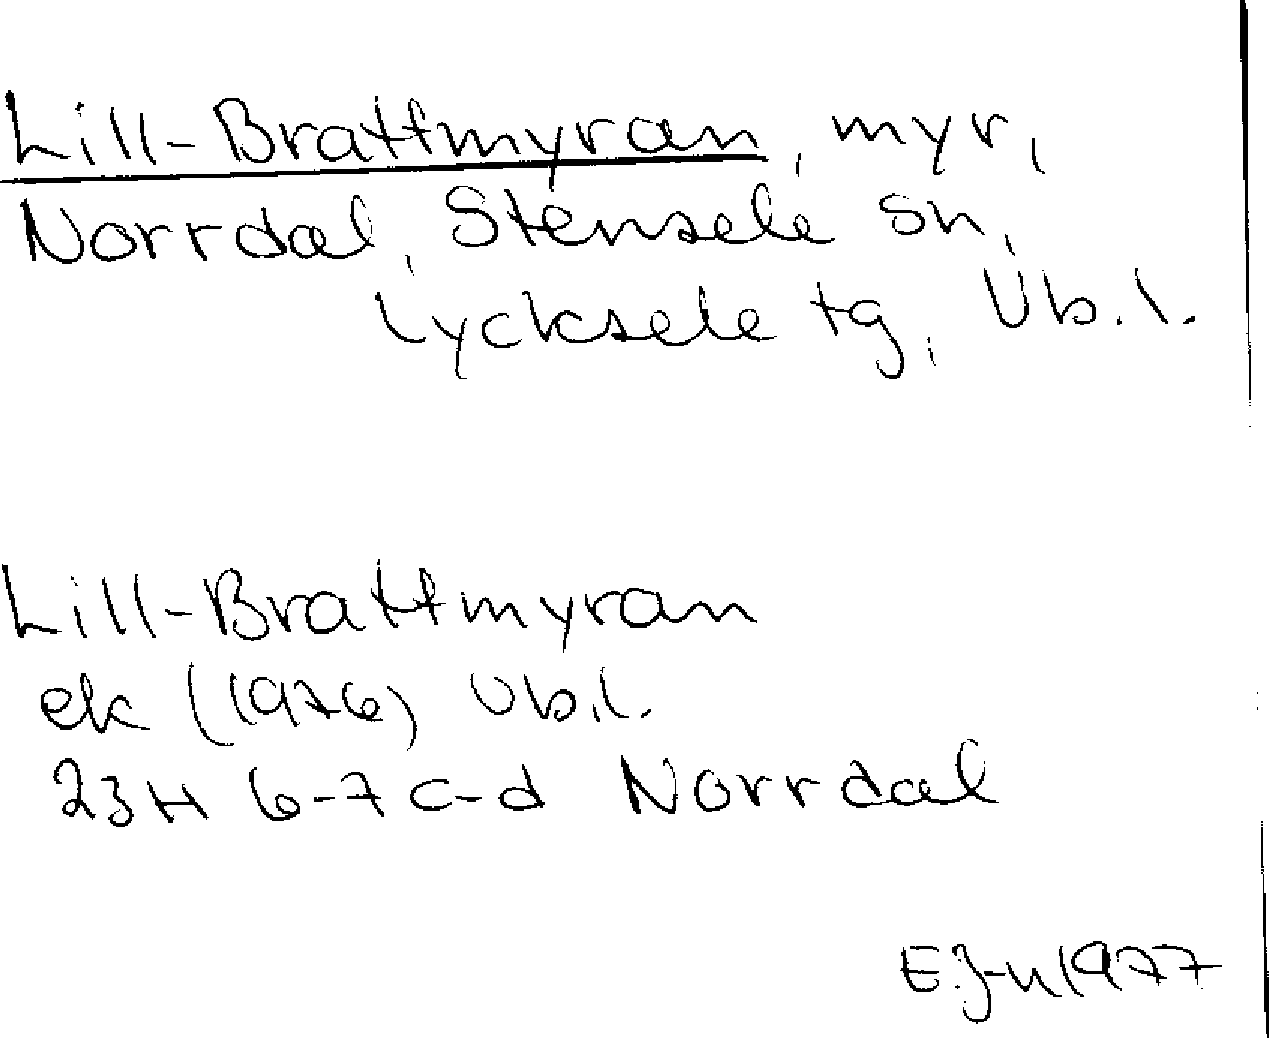 Lill-Brattmyran, myr,
Norrdal, Stensele sn,
Lycksele tg, Vb.l.
Lill-Brattmyran
ek (1976) Vb.l.
23H 6-7 c-d Norrdal
E.J-n 1977